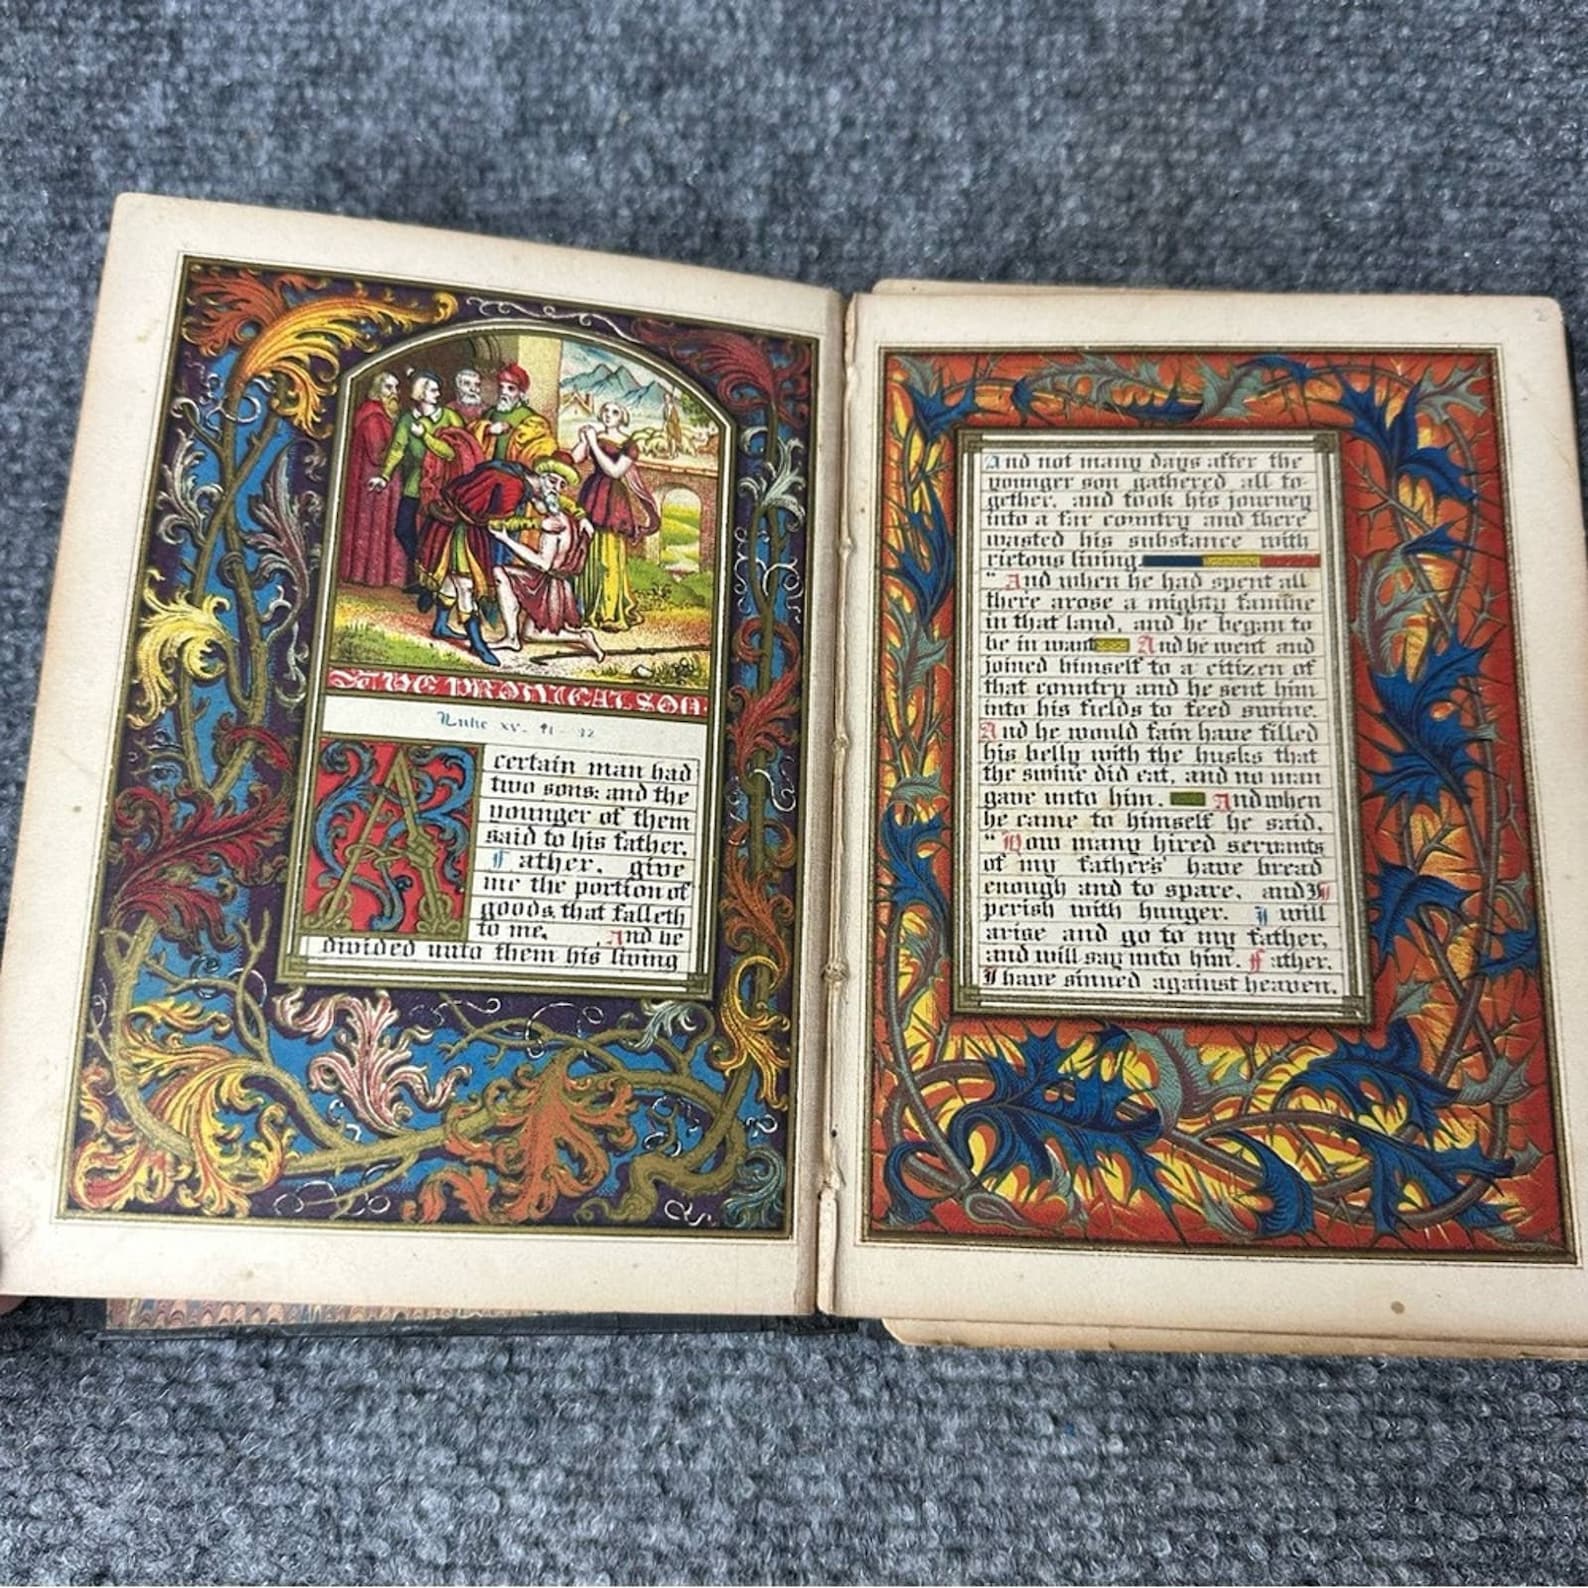 THE PRODIGAL SON.
Luke xv. 11 - 32
A
certain man had
two sons: and the
younger of them
said to his father,
Father, give
me the portion of
goods that falleth
to me. And he
divided unto them his living
And not many days after the
younger son gathered all to-
gether, and took his journey
into a far country and there
wasted his substance with
riotous living.
" And when he had spent all
there arose a mighty famine
in that land, and he began to
be in want And he went and
joined himself to a citizen of
that country and he sent him
into his fields to feed swine.
And he would fain have filled
his belly with the husks that
the swine did eat, and no man
gave unto him. And when
he came to himself he said,
" How many hired servants
of my father's have bread
enough and to spare, and I
perish with hunger. I will
arise and go to my father,
and will say unto him, Father,
I have sinned against heaven,